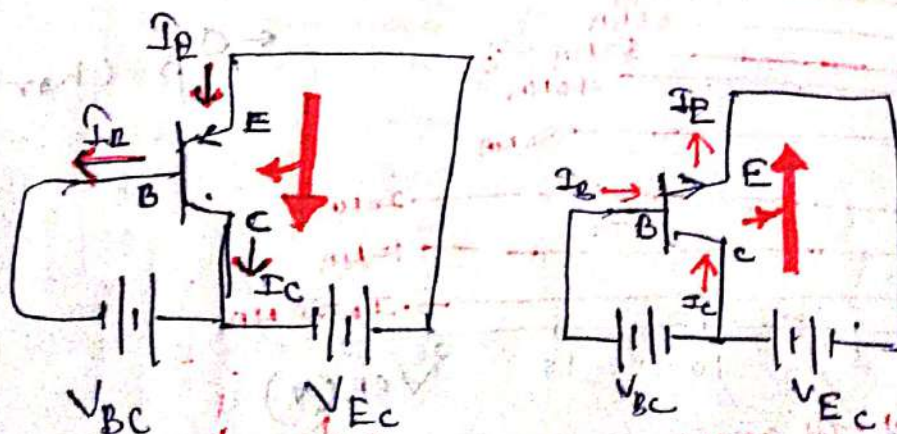 I_E
I_B
E
B
C
I_C
V_BC
V_EC
I_E
I_B
E
B
C
I_C
V_BC
V_EC